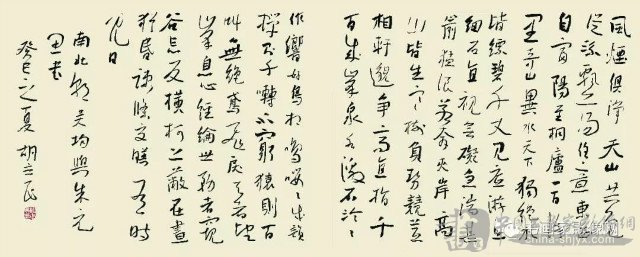 風煙俱淨天山共色
從流飄蕩任意東西
自富陽至桐廬一百許
里奇山異水天下獨絕水
皆縹碧千丈見底游魚
細石直視無礙急湍甚
箭猛浪若奔夾岸高
山皆生寒樹負勢競上互
相軒邈爭高直指千
百成峯泉水激石泠泠
作響好鳥相鳴嚶嚶成韻
蟬則千囀不窮猿則百
叫無絕鳶飛戾天者望
峯息心經綸世務者窺
谷忘反橫柯上蔽在晝
猶昏疎條交映有時
見日
南北朝吳均與朱元
思書
癸巳之夏胡立民
书画家影像网
www.shjyx.com